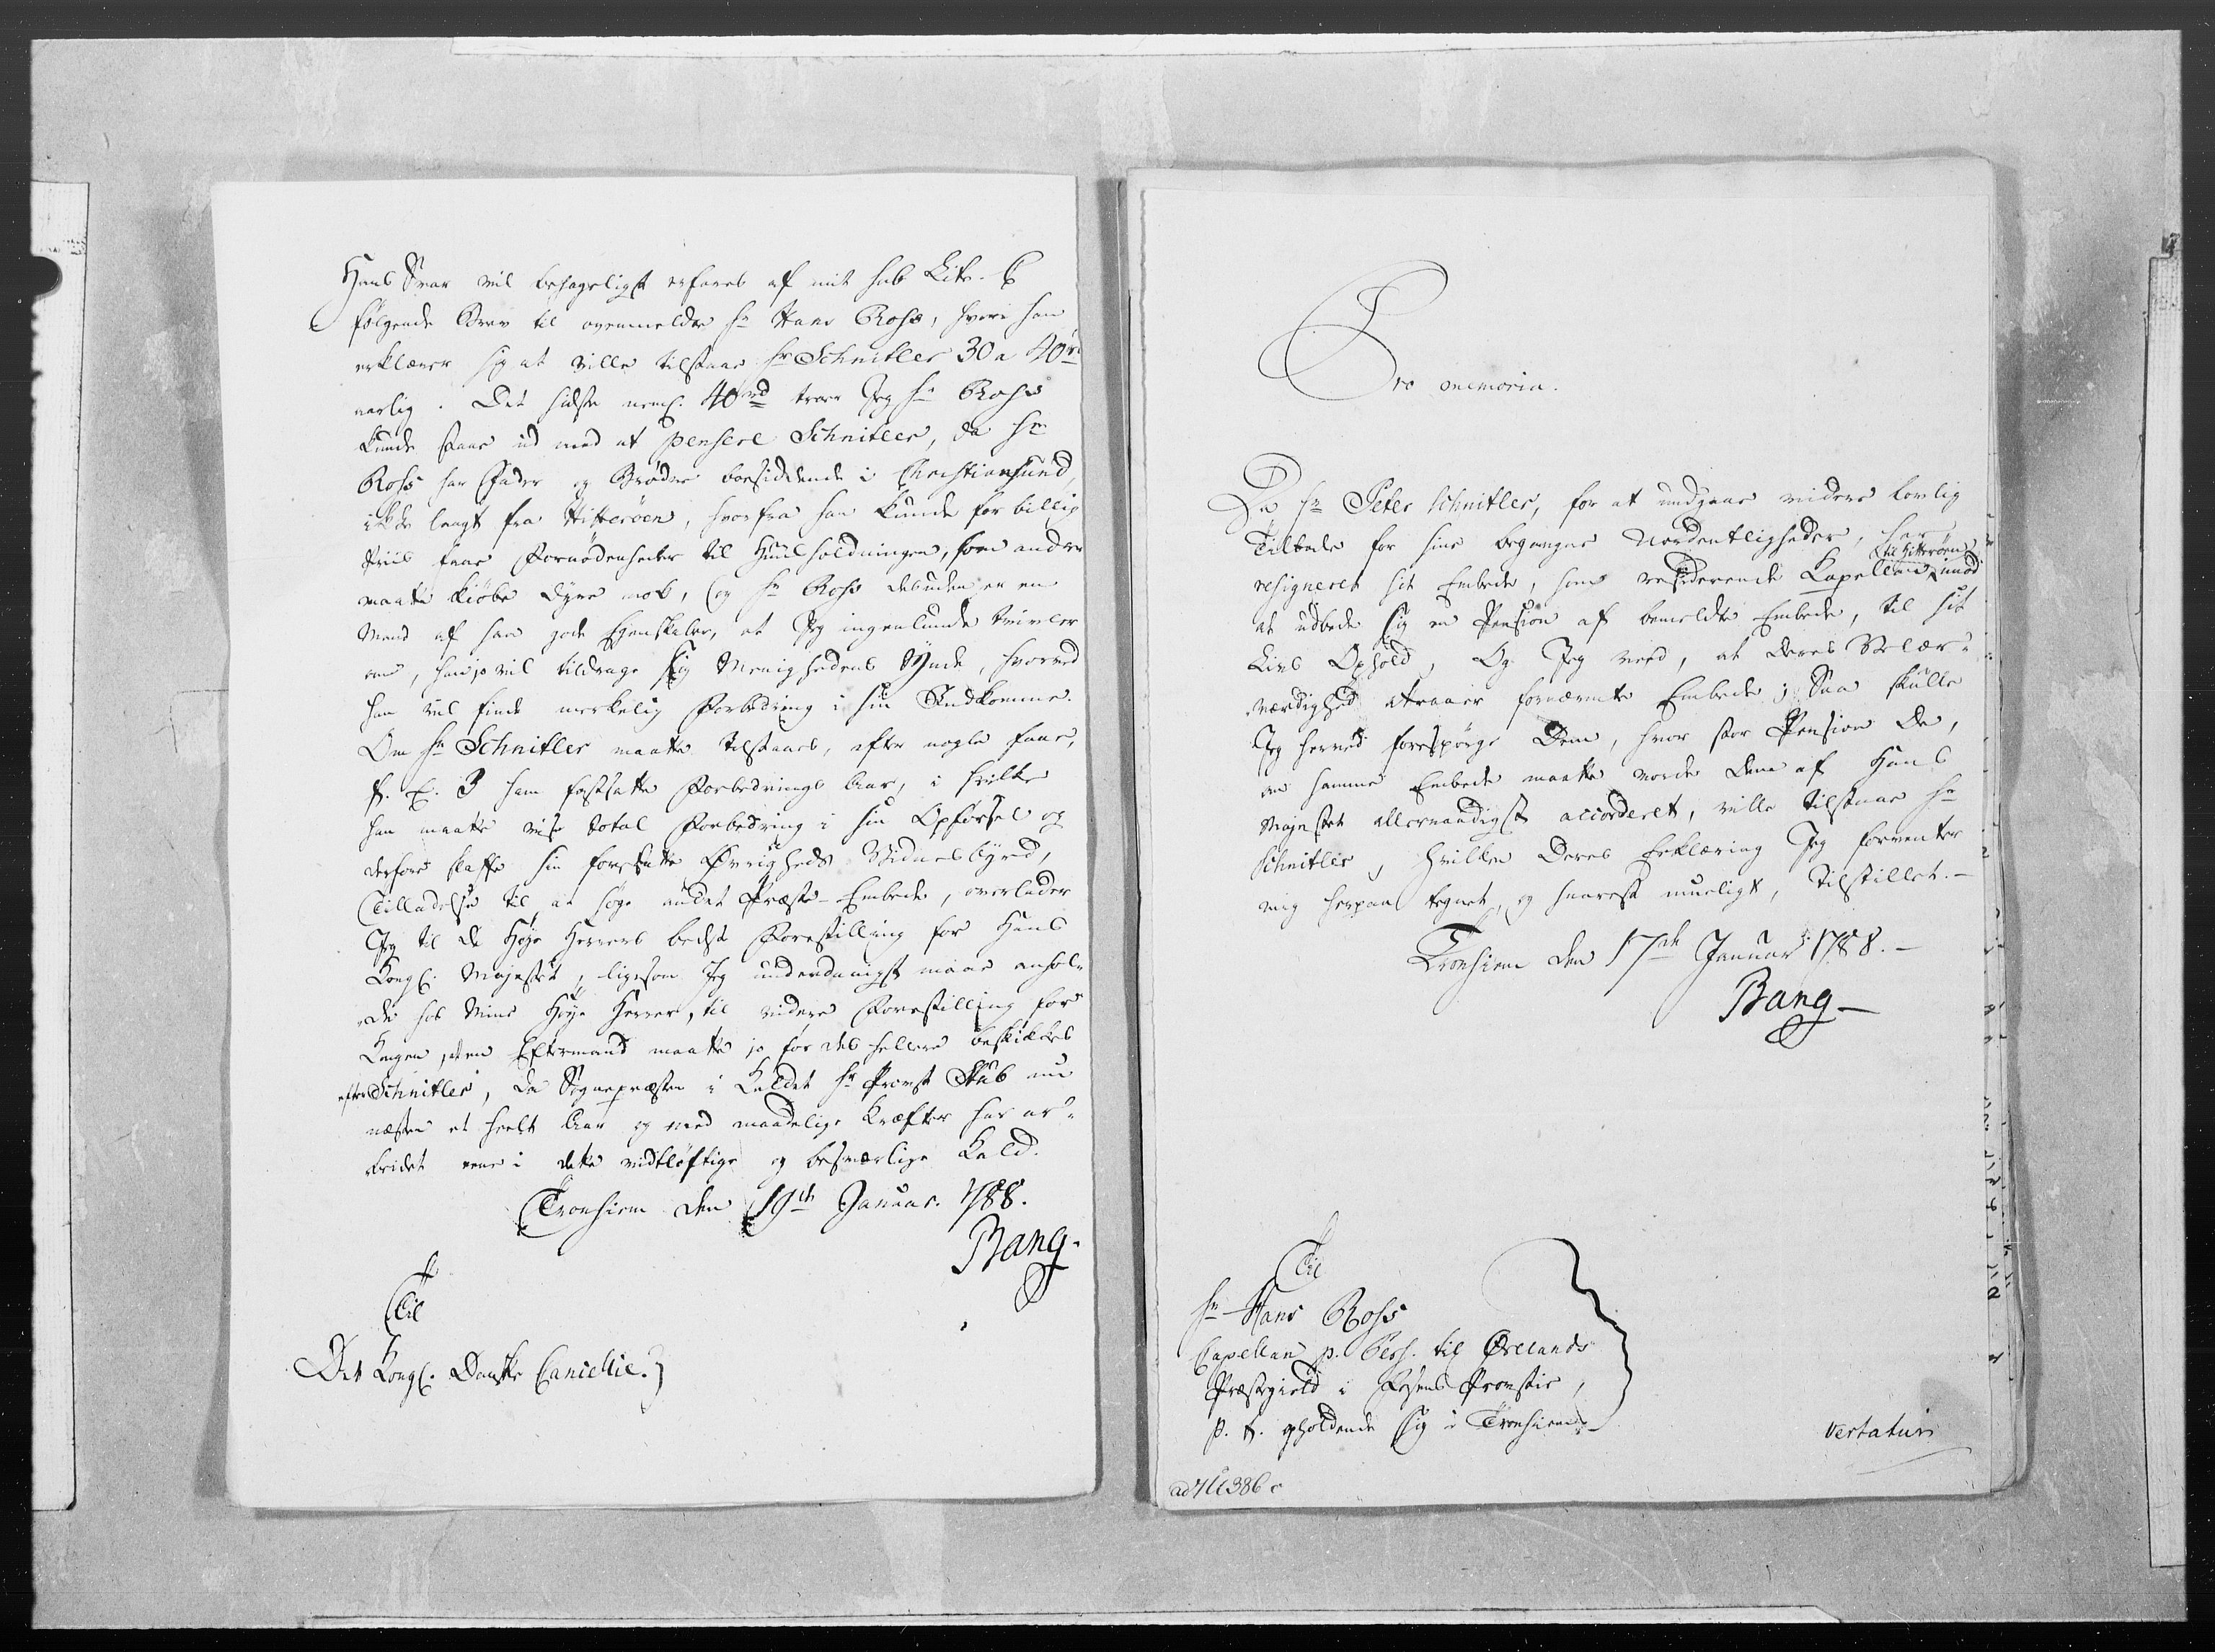 Hans Svar vil behageligst erfares af mit hos Litr. C
følgende Brev til ovenmeldte Hr Hans Ross, hvori han
erklærer sig at ville tilstaae Hr Schnitler 30 a 40 rd
aarlig. Det sidste neml. 40 rd troer Jeg Hr Ross
kunde staae ud med at pensere Schnitler, da Hr
Ross har Fader og Brødre boesiddende i Christiansund,
ikke langt fra Hitterøen, hvorfra han kunde for billig
Priis faae Fornødenheder til Huusholdningen, som andre
maatte kiøbe dyre nok, og Hr Ross desuden er en
Mand af saa gode Egenskaber, at Jeg ingenlunde tvivler
om, han jo vil tildrage sig Menighedens Yndest, hvorved
han vil finde merkelig Forbedring i sin Indkomme.
Om Hr Schnitler maatte tilstaaes, efter nogle faae,
f. E. 3 ham fastsatte Forbedrings Aar, i hvilke
han maatte vise total Forbedring i sin Opførsel og
derfore skaffe sin foresatte Øvrigheds Vidnesbyrd,
Tilladelse til at søge andet Præste-Embede, overlader
Jeg til de Høye Herrers bedste Forestilling for Hans
Kongl. Majestet, ligesom Jeg underdanigst maae anhol-
de hos Mine Høye Herrer, til videre Forestilling for
Kongen, at en Eftermand maatte jo før des hellere beskikkes
efter Schnitler, da Sognepræsten i Kaldet Hr Provst Stub nu
næsten et heelt Aar og med maadelige Kræfter har ar-
beidet ene i dette vidtløftige og besværlige Kald.
Tronhiem den 19de Januar. 1788.
Bang.
Til
Det Kongl. Danske Cancellie.
Pro memoria.
Da Hr Peter Schnitler, for at undgaae videre lovlig
Tiltale for sine begangne Uordentligheder, har
resigneret sit Embede, som residerende Kapellan til Hitterøen, mod
at udbede sig en Pension af bemeldte Embede, til sit
Livs Ophold, Og Jeg veed, at Deres Velær-
værdighed attraaer fornævnte Embede; Saa skulle
Jeg herved forespørge Dem, hvor stor Pension De,
om samme Embede maatte vorde Dem af Hans
Majestet allernaadigst accorderet, ville tilstaae Hr
Schnitler, hvilken Deres Erklæring Jeg forventer
mig herpaa tegnet, og snarest mueligt, tilstillet.-
Tronhiem den 17de Januar 1788.-
Bang-
Til
Hr Hans Ross
Capellan p. Pers. til Ørelands
Præstegield i Fosens Provstie,
p. t. opholdende sig i Tronhiem.
vertatur